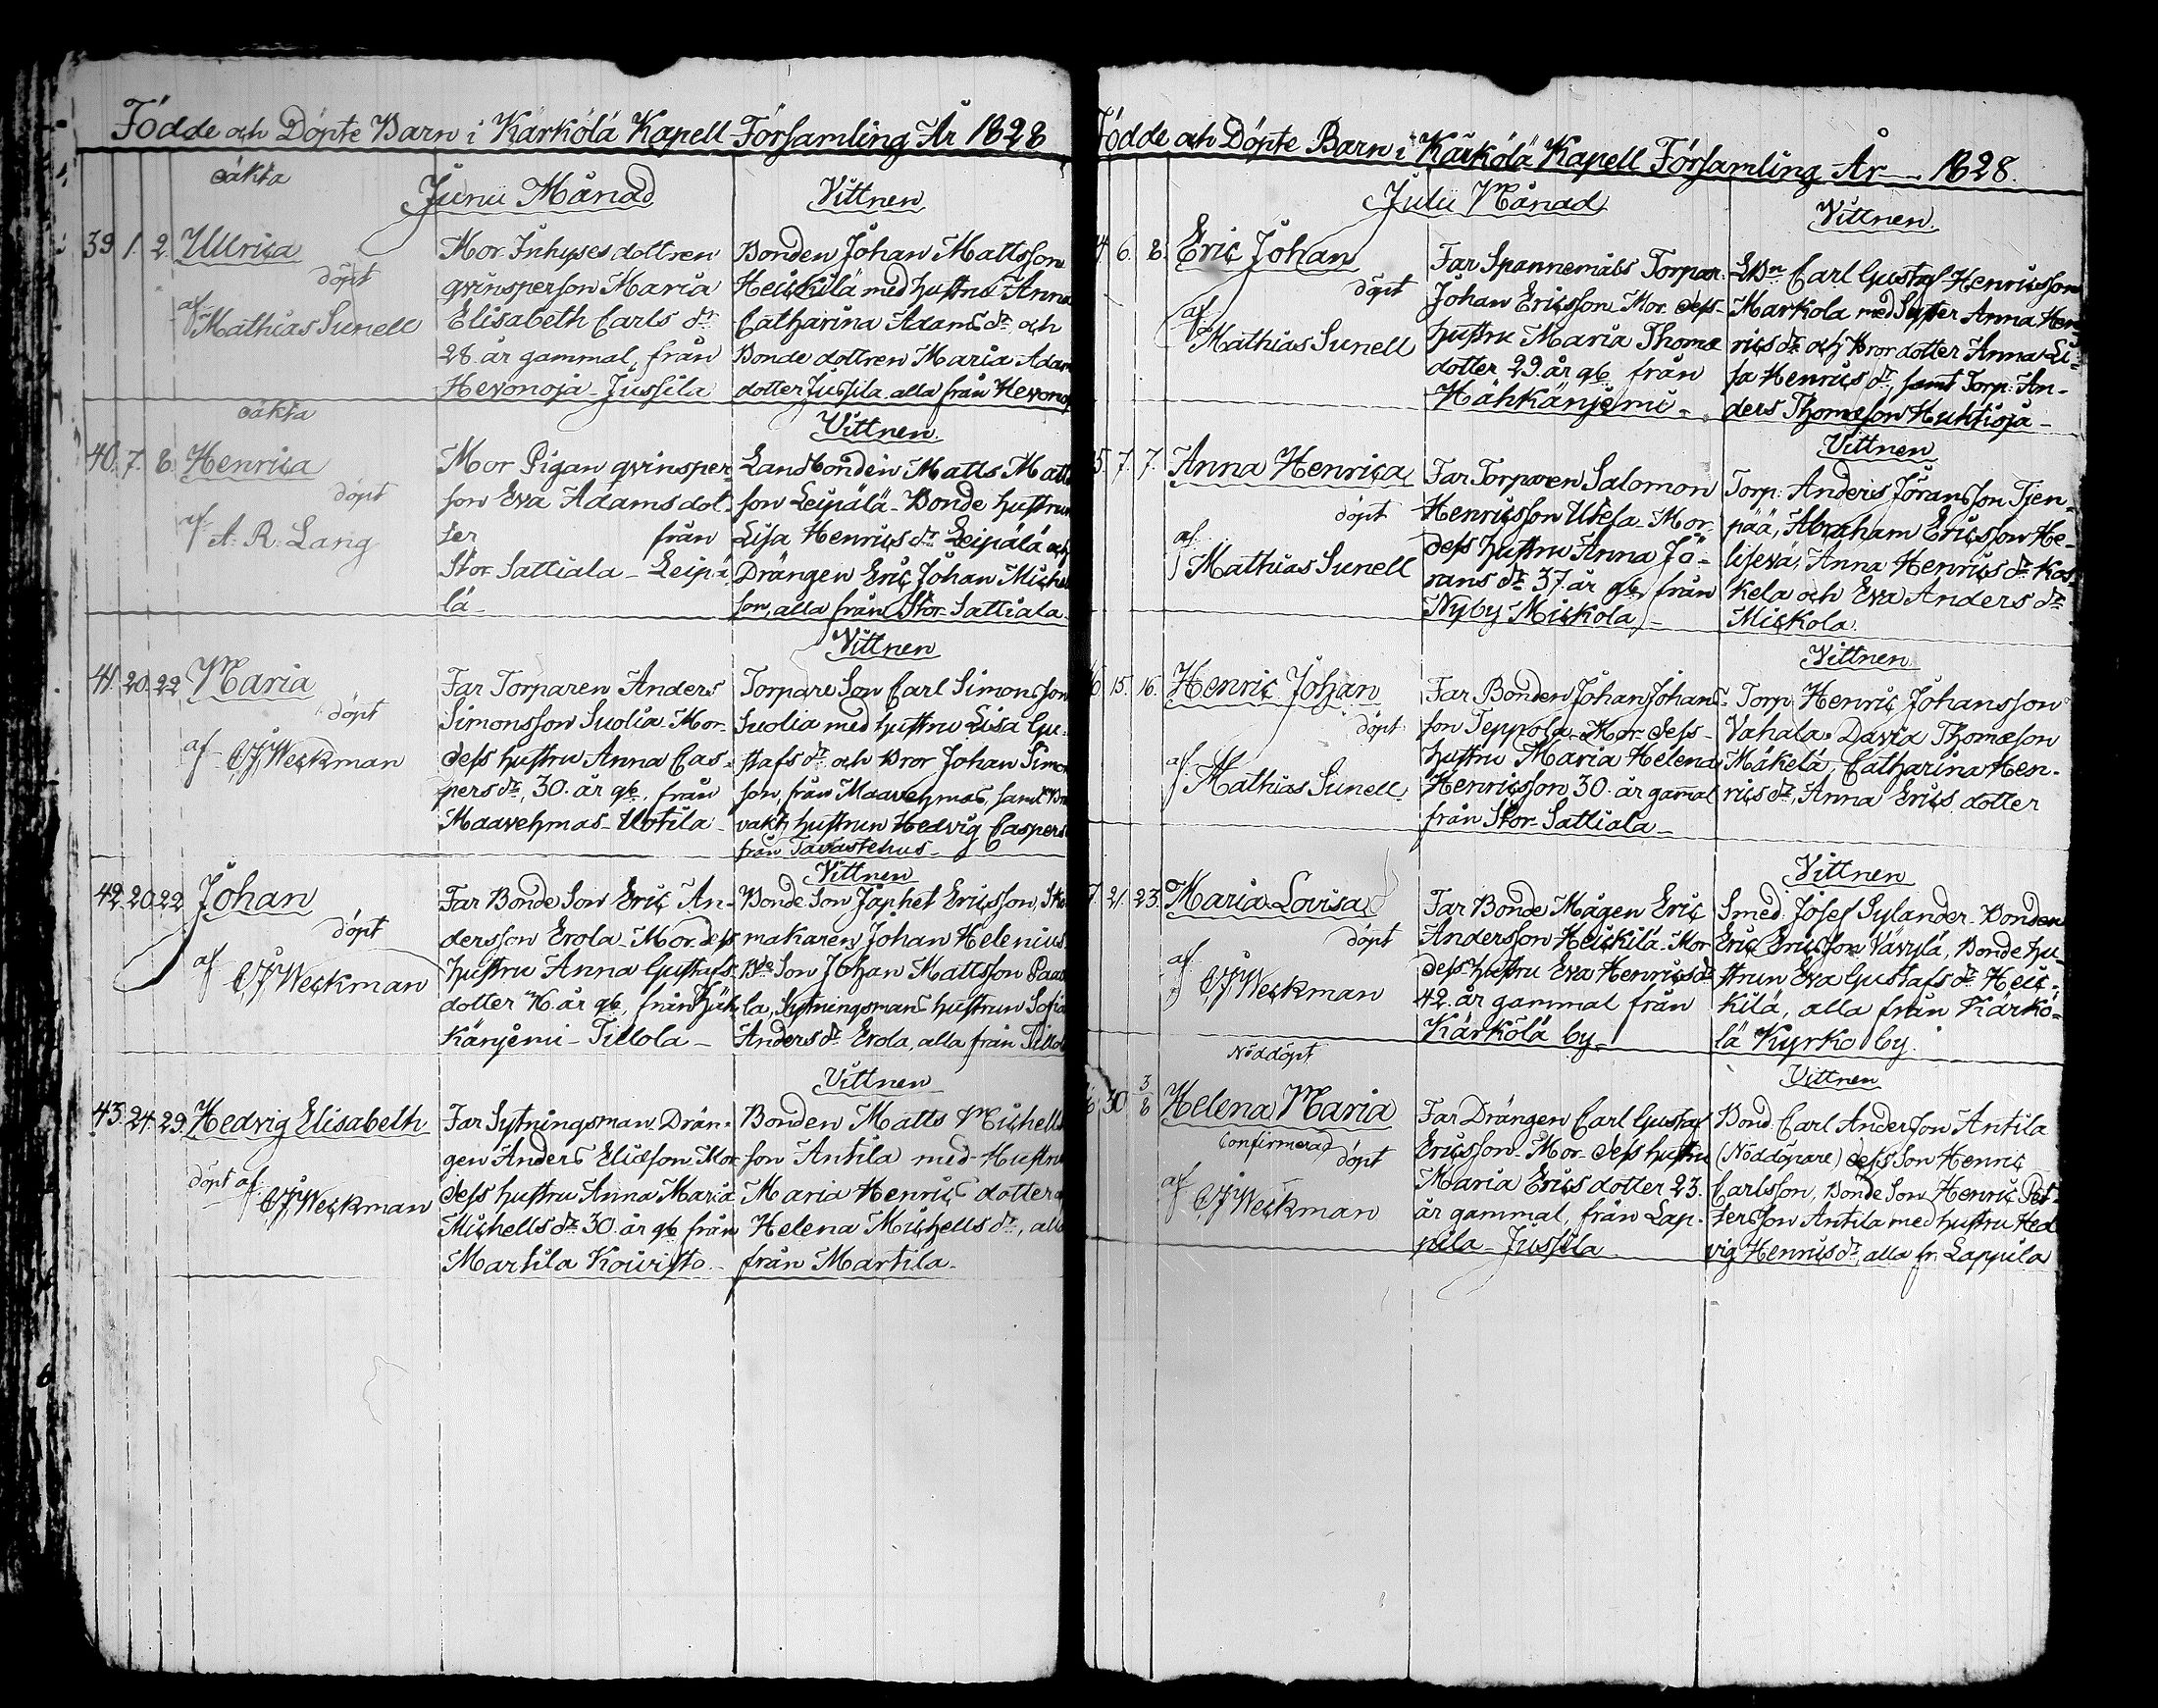 Födde och Döpte Barn i Kärkölä Kapell Församling År 1828
oäkta
Junii Månad
Vittnen
39. 1. 2. Ullrica
döpt
af Mathias Sunell
Mor Inhyses dottren
qvinsperson Maria
Elisabeth Carls dr
28 år gammal, från
Hevonoja Jussila
Bonden Johan Mattsson
Heickilä med hustru Anna
Catharina Adams dr och
Bonde dottren Maria Adams
dotter Jussila alla från Hevonoja
oäkta
Vittnen
40. 7. 8. Henrica
döpt
af A. R. Lang
Mor Pigan qvinsper-
son Eva Adams dot-
ter från
Stor Sattiala - Leipä-
lä
Landbonden Matts Matts
son Leipälä - Bonde hustrun
Lisa Henrics dr Leipälä och
Drängen Eric Johan Michel
son, alla från Stor-Sattiala
Vittnen
41. 20. 22 Maria
döpt
af CJ Weckman
Far Torparen Anders
Simonsson Suolia - Mor
dess hustru Anna Cas-
pers dr, 30. år gl. från
Maavehmas - Uotila
Torpare Son Carl Simonsson
Suolia med hustru Lisa Gu-
stafs dr och Bror Johan Simon
son, från Maavehmas, samt
vakt hustrun Hedvig Caspers
från Tavastehus
Vittnen
42. 20. 22 Johan
döpt
af CJ Weckman
Far Bonde Son Eric An-
dersson Erola - Mor dess
hustru Anna Gustafs-
dotter år gl. från Häh-
känjemi - Tillola
Bonde Son Japhet Ericsson, Sko
makaren Johan Helenius
Bde Son Johan Mattsson
la, Sytningsmans hustrun Sofia
Anders dr Erola, alla från Tillola
Vittnen
43. 24. 29. Hedvig Elisabeth
döpt af CJ Weckman
Far Sytningsman Drän-
gen Anders Eliæson Mor
dess hustru Anna Maria
Michells dr 30. år gl. från
Martila Koivisto
Bonden Matts Michells
son Antila med Hustru
Maria Henrics dotter
Helena Michells dr, alla
från Martila
Födde och Döpte Barn i Kärkölä Kapell Församling År 1828.
Julii Månad
Vittnen
4 6. 8. Eric Johan
döpt
af
Mathias Sunell
Far Spannemåls Torpar.
Johan Ericsson Mor dess
hustru Maria Thomæ
dotter 29. år gl. från
Hähkänjemi
Carl Gustaf Henricsson
Markola med Syster Anna Hen-
rics dr och Bror dotter Anna Li-
sa Henrics dr, samt Torp: An-
ders Thomæson Huhtioja
Vittnen
5. 7. 7. Anna Henrica
döpt
af
Mathias Sunell
Far Torparen Salomon
Henricsson Utela - Mor
dess hustru Anna Jö-
rans dr 37. år gl. från
Nyby Mickola
Torp: Anders Jöransson Tjen-
pää, Abraham Ericsson He-
lisevä, Anna Henrics dr Kas-
kela och Eva Anders dr
Mickola.
Vittnen
6. 15. 16. Henric Johan
döpt
af Mathias Sunell
Far Bonden Johan Johans-
son Teppola - Mor dess
hustru Maria Helena
Henricsson 30. år gammal
från Stor-Sattiala
Torp Henric Johansson
Vahala. David Thomæson
Mäkelä, Catharina Hen-
rics dr, Anna Erics dotter
Vittnen
7. 21. 23. Maria Lovisa
döpt
af CJ Weckman
Far Bonde Mågen Eric
Andersson Heickilä - Mor
dess hustru Eva Henrics dr
42. år gammal från
Kärkölä by
Smed: Josef Sylander Bonden
Eric Ericsson Vävylä, Bonde hu-
strun Eva Gustafs dr Heic-
kilä, alla från Kärkö-
lä Kyrko by.
Nöddöpt
Vittnen
8 30. 3/8 Helena Maria
Confirmerad döpt
af CJ Weckman
Far Drängen Carl Gustaf
Ericsson - Mor dess hustru
Maria Erics dotter 23.
år gammal, från Lap-
pila Jussila
Bond. Carl Andersson Antila
(Nöddöpare) dess Son Henric
Carlsson, Bonde Son Henric Pet-
tersson Antila med hustru Hed
vig Henrics dr, alla fr. Lappila